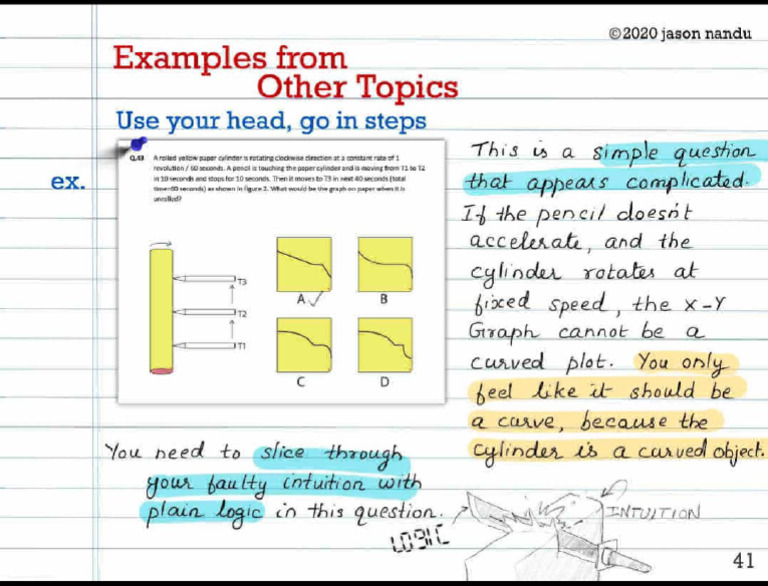 ©2020 jason nandu
Examples from
Other Topics
Use your head, go in steps
ex.
Q.43 A rolled yellow paper cylinder is rotating clockwise direction at a constant rate of 1
revolution / 60 seconds. A pencil is touching the paper cylinder and is moving from T1 to T2
in 10 seconds and stops for 10 seconds. Then it moves to T3 in next 40 seconds (total
time=60 seconds) as shown in figure 2. What would be the graph on paper when it is
unrolled?
T3
T2
T1
A
B
C
D
This is a simple question
that appears complicated.
If the pencil doesn't
accelerate, and the
cylinder rotates at
fixed speed, the X-Y
Graph cannot be a
curved plot. You only
feel like it should be
a curve, because the
cylinder is a curved object.
You need to slice through
your faulty intuition with
plain logic in this question.
LOGIC
INTUITION
41